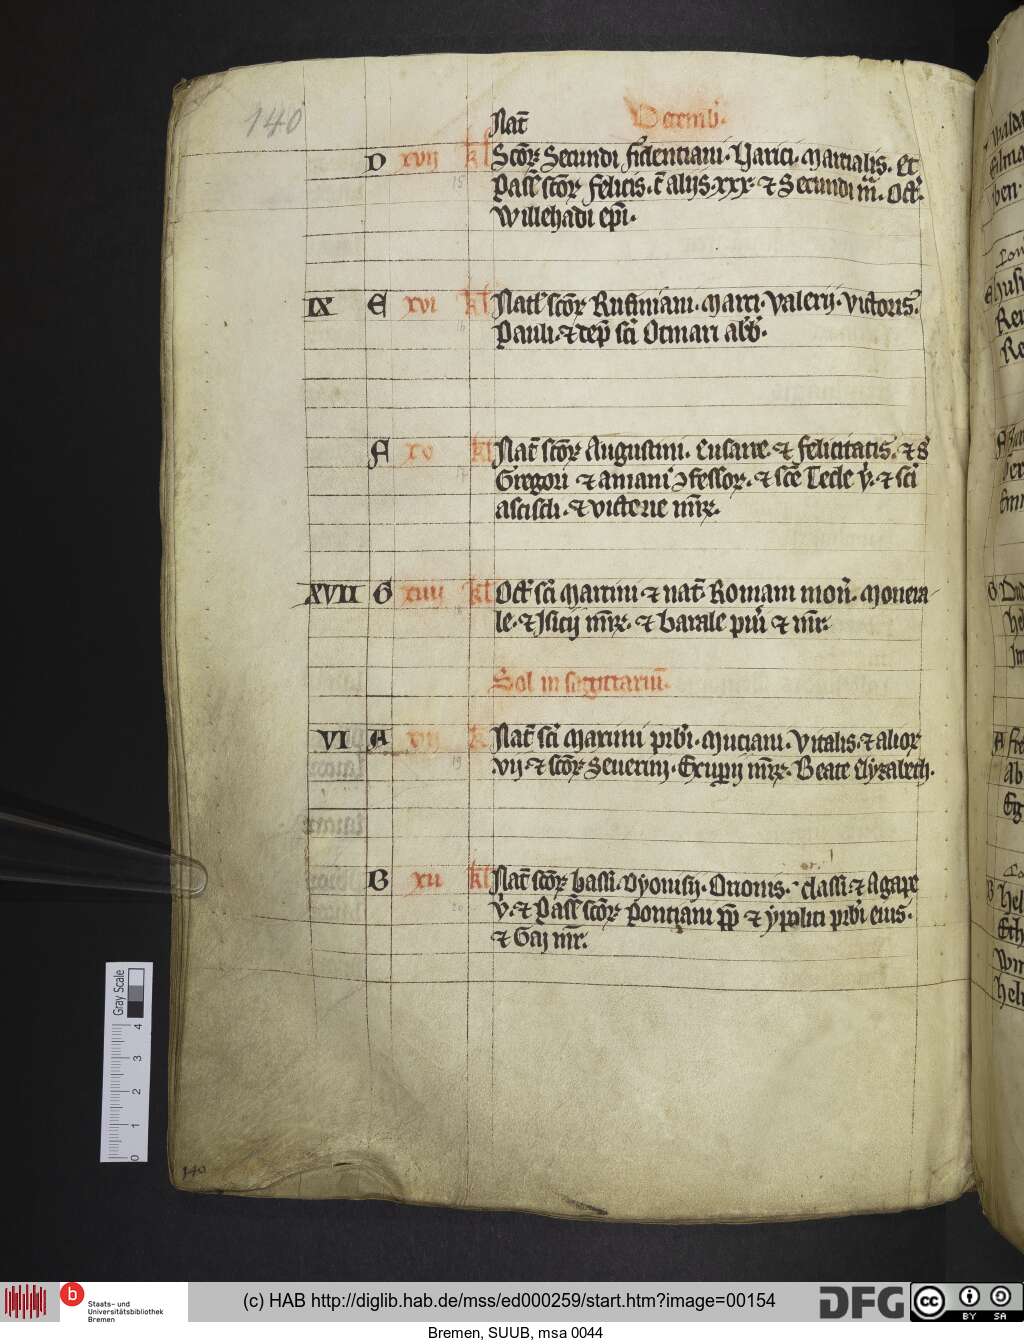 140
Nat̄ Decemb̄.
D xvii kl Sc̄oꝝ Secundi fidentiani. Varici. Marcialis. Et
15 Pass̄ sc̄oꝝ felicis. c̄ alijs. xxx. ⁊ Secundi m̄. Oct̄.
Willehadi ep̄i.
IX E xvi kl Natl̄ sc̄oꝝ Rufiniani. Marci. Valerij. Victoris.
Pauli. ⁊ dep̄ sc̄i Otmari abb̄.
F xv kl Nat̄ sc̄oꝝ Augustini. Eusarie. ⁊ felicitatis. ⁊ s̄
Gregorii ⁊ Aniani ꝯfessoꝝ. ⁊ sc̄e Tecle v̄. ⁊ sc̄i
Asciscli. ⁊ Victorie m̄rꝝ.
XVII G xiiii kl Oct̄ sc̄i Martini ⁊ nat̄ Romani mon̄. Monera
le. ⁊ Isicij m̄rꝝ. ⁊ Barale pru̅ ⁊ m̄r.
Sol in sagittariu̅.
VI A kl Nat̄ sc̄i Maximi prb̄i. Muciani. Vitalis. ⁊ alioꝝ
19 vij. ⁊ sc̄oꝝ Seuerini. Exuperij m̄rꝝ. Beate Elyzabeth.
B xii kl Nat̄ sc̄oꝝ bassi. Dyonisij. Orionis. dassi. ⁊ Agape
v̄. ⁊ Pass̄ sc̄oꝝ Pontiani pp̄ ⁊ ypoliti prb̄i eius.
⁊ Gaij m̄r.
140
Gray Scale
0 1 2 3 4
Staats- und
Universitätsbibliothek
Bremen
(c) HAB http://diglib.hab.de/mss/ed000259/start.htm?image=00154
DFG
CC BY SA
Bremen, SUUB, msa 0044